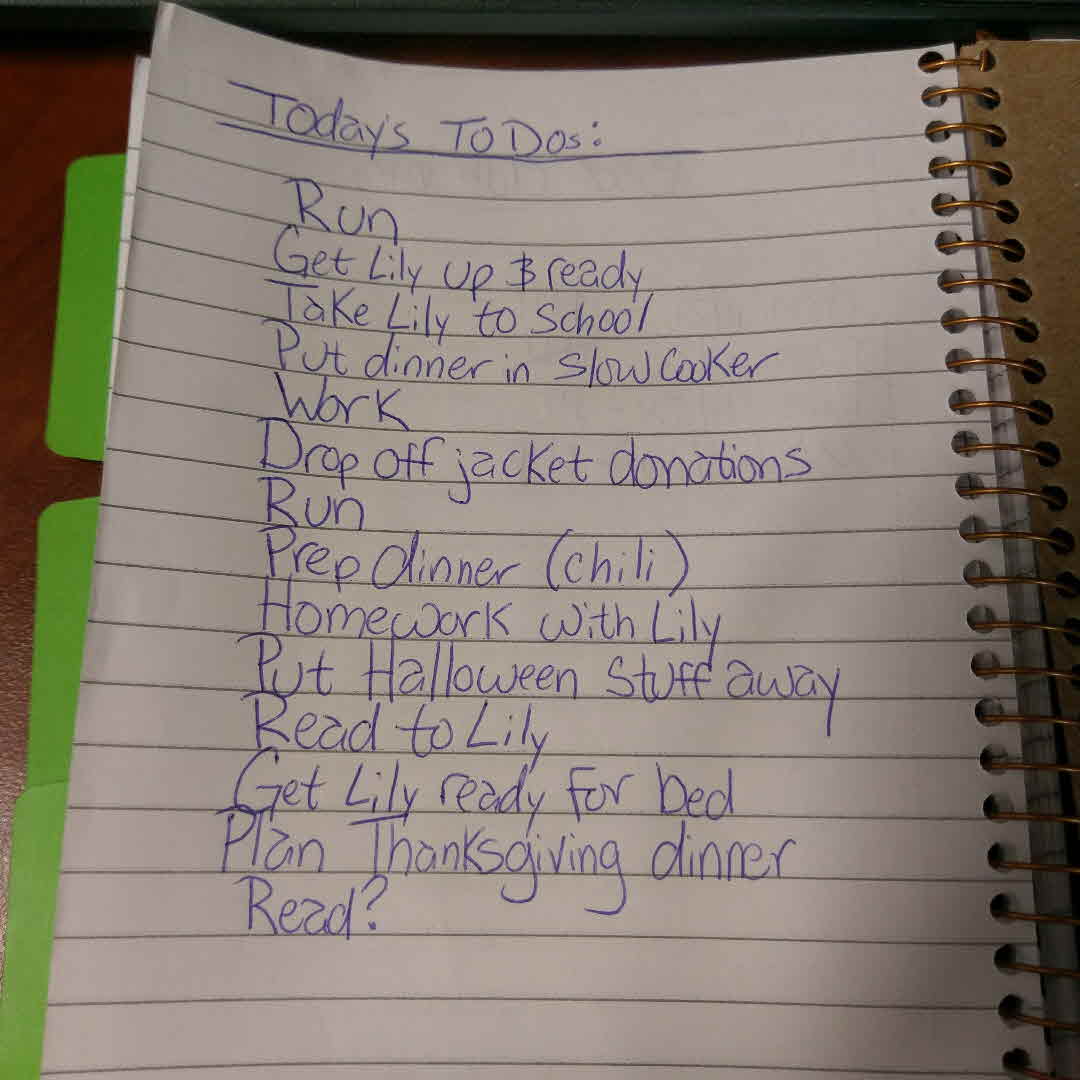 Today's To Dos:
Run
Get Lily up & ready
Take Lily to School
Put dinner in slow cooker
Work
Drop off jacket donations
Run
Prep dinner (chili)
Homework with Lily
Put Halloween stuff away
Read to Lily
Get Lily ready for bed
Plan Thanksgiving dinner
Read?